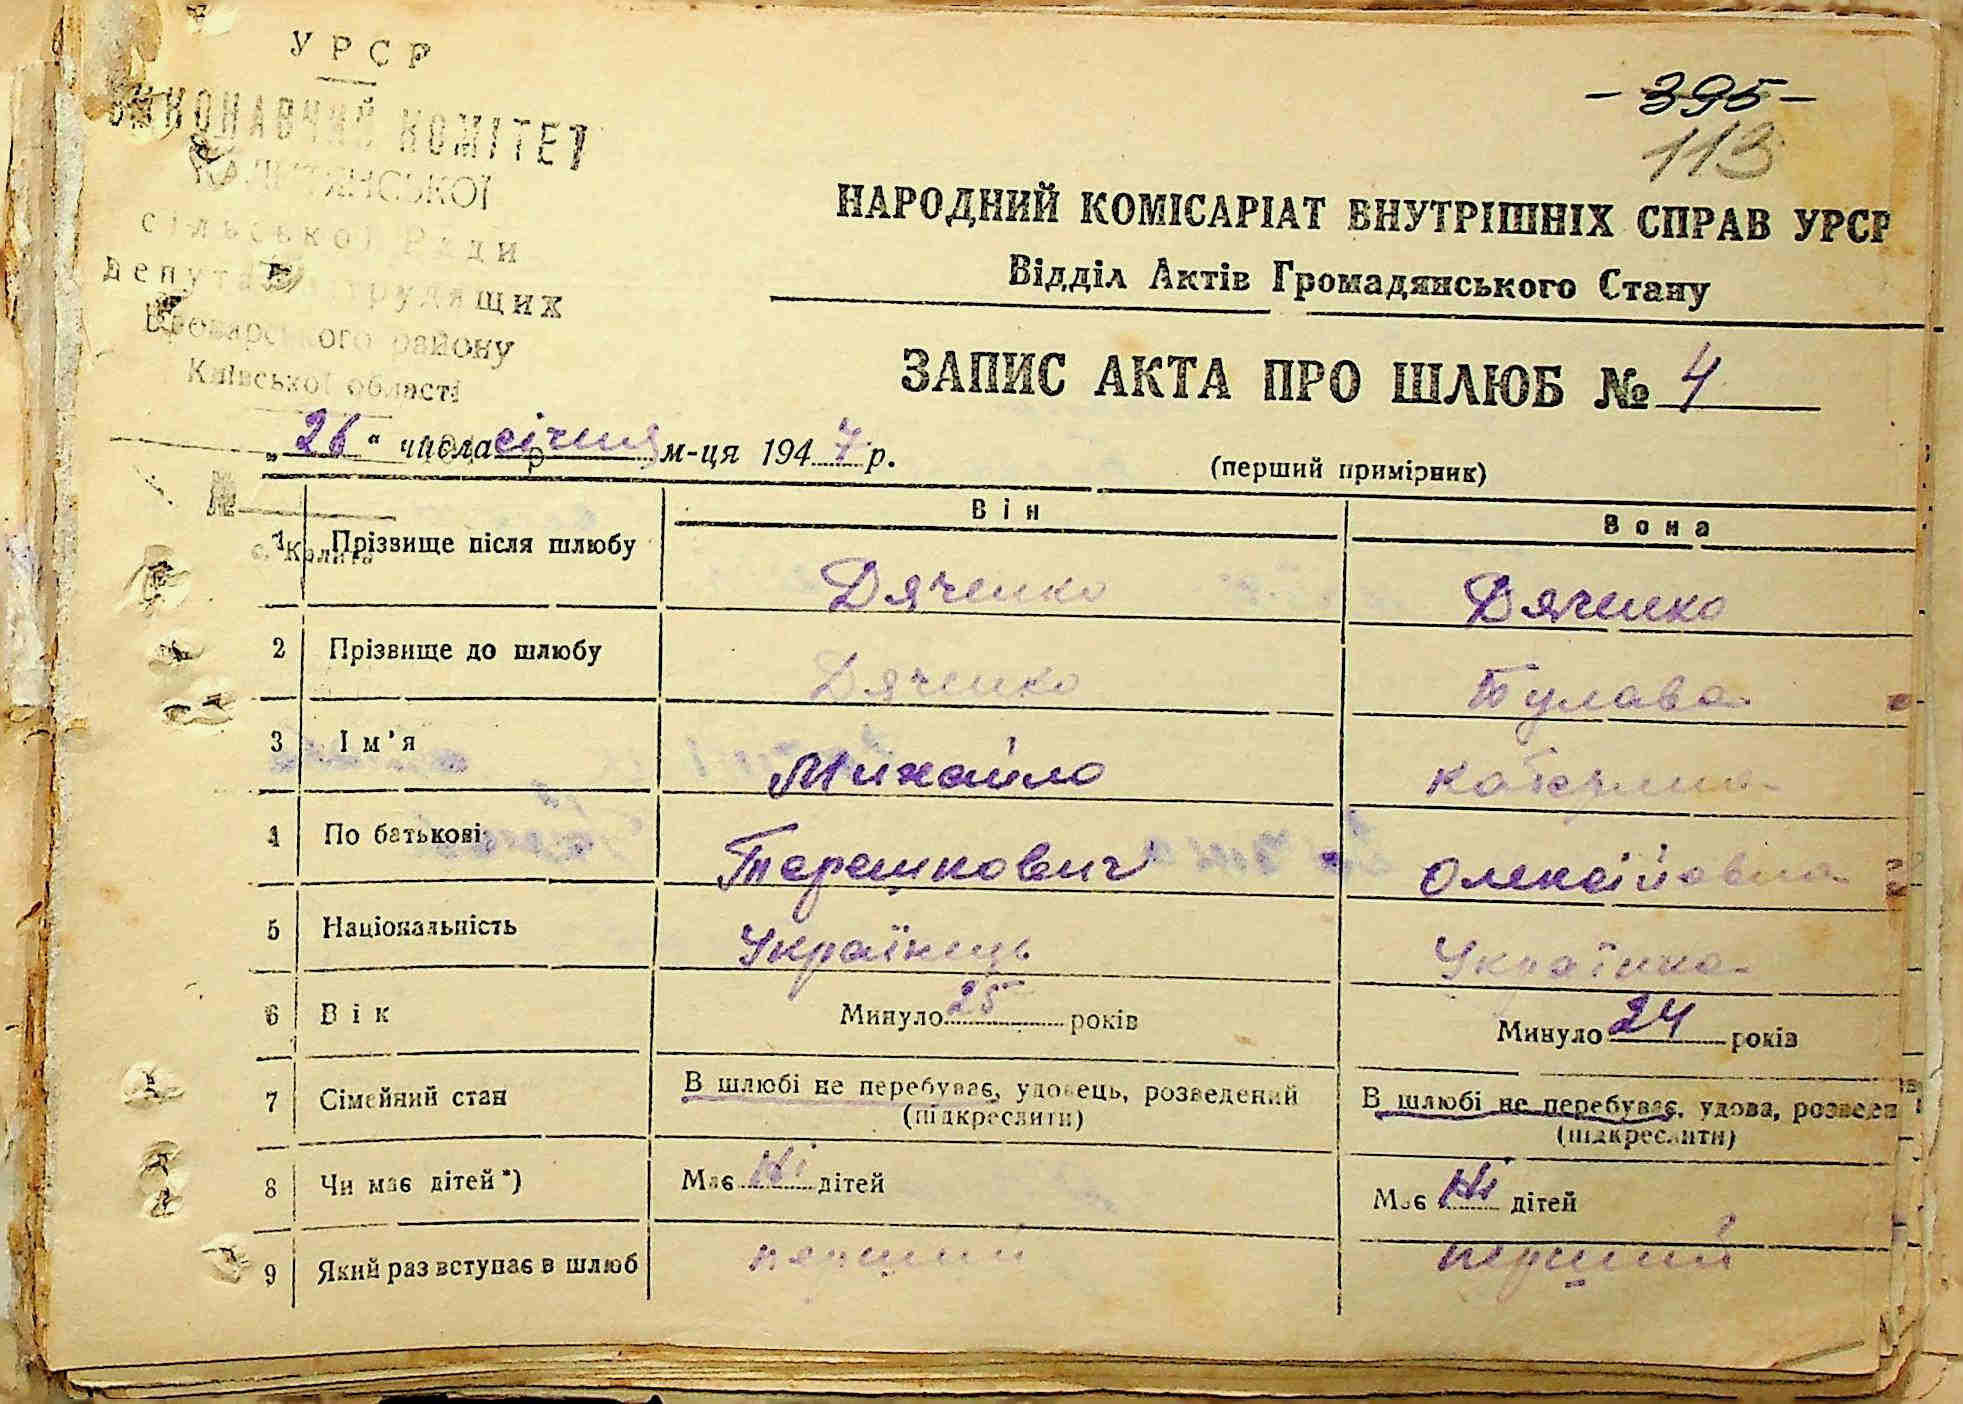 УРСР
ВИКОНАВЧИЙ КОМІТЕТ
КАЛИТЯНСЬКОЇ
сільської Ради
депутатів трудящих
Броварського району
Київської області
- 395 -
113
НАРОДНИЙ КОМІСАРІАТ ВНУТРІШНІХ СПРАВ УРСР
Відділ Актів Громадянського Стану
ЗАПИС АКТА ПРО ШЛЮБ № 4
„26“ числа січня м-ця 1947 р.
(перший примірник)
№
с. Калита
Він Вона
1 Прізвище після шлюбу Дяченко Дяченко
2 Прізвище до шлюбу Дяченко Булава
3 Ім'я Михайло Катерина
4 По батькові Терешкович Олексіївна
5 Національність Українець Українка
6 Вік Минуло 25 років Минуло 24 років
7 Сімейний стан В шлюбі не перебуває, удовець, розведений В шлюбі не перебуває, удова, розведен
(підкреслити) (підкреслити)
8 Чи має дітей*) Має Ні дітей Має Ні дітей
9 Який раз вступає в шлюб перший перший